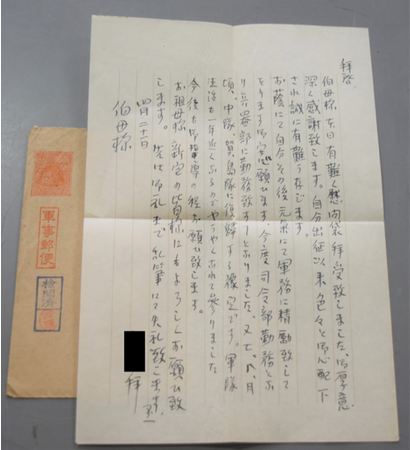 拝啓
伯母様 本日有難く慰問袋拝受致しました。御厚意
深く感謝致します。自分出征以来色々と御心配下
され誠に有難う存じます。
お蔭にて自分その後元気にて軍務に精励致して
をります 御安心願ひます。今度司令部勤務とな
り兵器部に勤務致してをりました。又七、八月
頃、中隊、賀島隊に復帰する豫定です。軍隊
生活も一年近くなるのでやうやくなれて参りました
今後も御指導の程お願ひ致します。
お祖母様 新宅の皆様にもよろしくお願ひ致
します。先は御礼まで 乱筆にて失礼致します。
四月二十一日
拝
伯母様
軍事郵便
検閲済